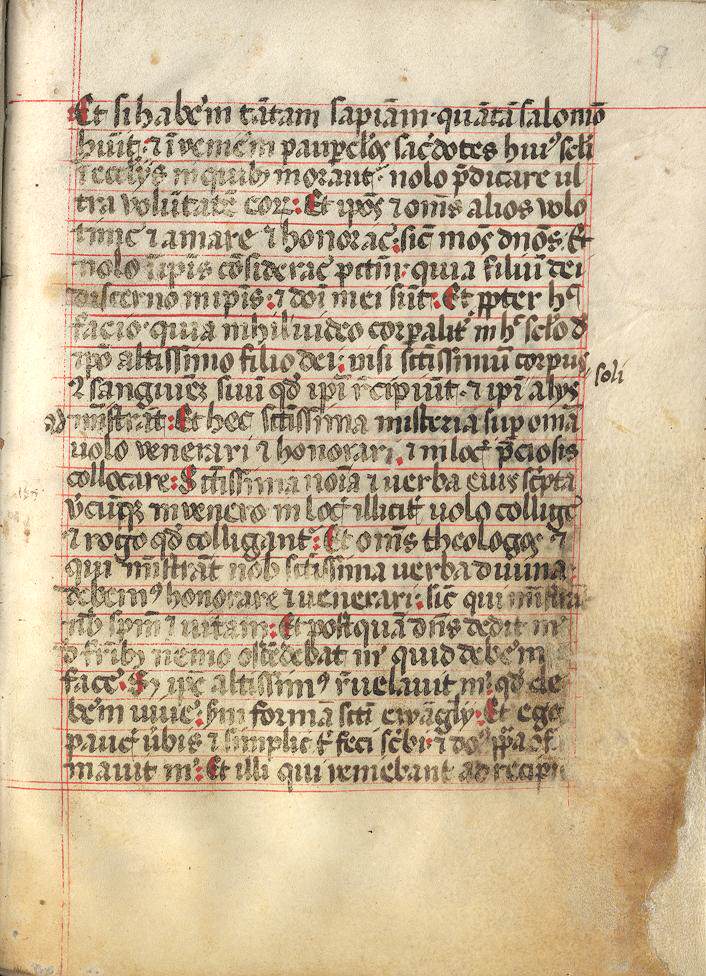 9
Et si habe᷑m tātam sapiām · quātā salomō
huit᷑ · ⁊ īvenirē᷑m paupe᷑clos᷑ sac᷑dotes huiꝰ sc̄li
ī eccl᷑ijs in quib᷑ morant᷑ nolo p̄dicare ul
tra volūtatē coꝝ : Et ip̄os ⁊ om̄s alios volo
tim᷑e ⁊ amare ⁊ honorar᷑e sic᷑ mos᷑ dn̄os . Et
nolo ī ip̄is cōsiderar᷑e pctm̄ · quia filiū dei
discerno in ip̄is : ⁊ dn̄i mei sūt : Et p̱pter h᷑
facio · quia nihil video corp̱alit᷑ in h᷑ sc̄lo d᷑
ip̄o altissimo filio dei . nisi sc̄tissimū corpus
⁊ sanguinē suū qd᷑ ip̄i r᷑cipiūt · ⁊ ip̄i alijs soli
ad mīstrāt : Et hec sc̄tissima misteria sup᷑ omīa
uolo venerari ⁊ honorari . ⁊ in loc᷑ p᷑ciosis
collocare : Sc̄tissima noīa ⁊ uerba eius sc᷑pta
v᷑cūqꝫ invenero in loc᷑ illicit᷑ uolo collige᷑
⁊ rogo qd᷑ colligant᷑ : Et om̄s theologos ⁊
qui mīstrāt nob᷑ sc̄tissima uerba diuina
debemꝰ honorare ⁊ uenerari : sic᷑ qui mīstrāt
nob᷑ sp̄m ⁊ uitam : Et postquā dn̄s dedit m᷑
d᷑ fr̄ib᷑ nemo ostēdebat m᷑ quid debe᷑m
face᷑ . S᷑ ip̄e altissimꝰ r᷑uelauit m᷑ : qd᷑ de
be᷑m uiue᷑ : s᷑m formā sc̄ti ewāgly : Et ego
pauc᷑ ūbis ⁊ simplicit᷑ feci sc᷑bi · ⁊ do᷑ pp̄a cōf
mauit m᷑ : Et illi qui veniebant ad recipi